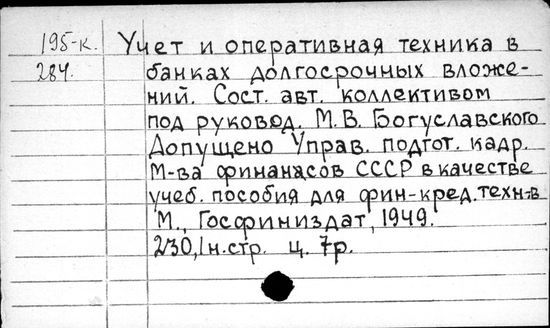 195-к. Учет и оперативная техника в
284. банках долгосрочных вложе-
ний. Сост. авт. коллективом
под руковод. М.В. Богуславского
Допущено Управ. подгот. кадр.
М-ва финанасов СССР в качестве
учеб. пособия для фин-кред. техн-в
М., Госфиниздат, 1949.
230,1н.стр. ц. 7р.